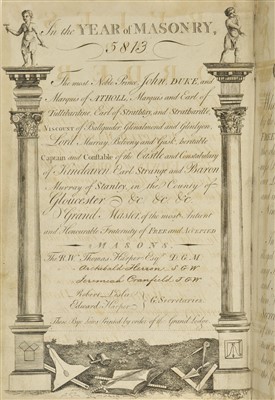 In the YEAR of MASONRY,
5813
The most Noble Prince JOHN, DUKE, and
Marquis of ATHOLL, Marquis and Earl of
Tullibardine, Earl of Strathtay, and Strathardle,
VISCOUNT of Ballquider Glenalmond and Glenlyon,
Lord Murray, Belveny and Gask, heritable
Captain and Constable of the Castle and Constabulary
of Kinclaven, Earl Strange and Baron
Murray of Stanley, in the County of
Gloucester &c &c &c
Grand Master, of the most Antient
and Honourable Fraternity of FREE and ACCEPTED
MASONS.
The R.W. Thomas Harper Esqr. D.G.M
Archibald Herron S.G.W
Jeremiah Cranfield J.G.W
Robert Leslie
Edward Harper
G. Secretaries
These Bye Laws Printed by order of the Grand Lodge